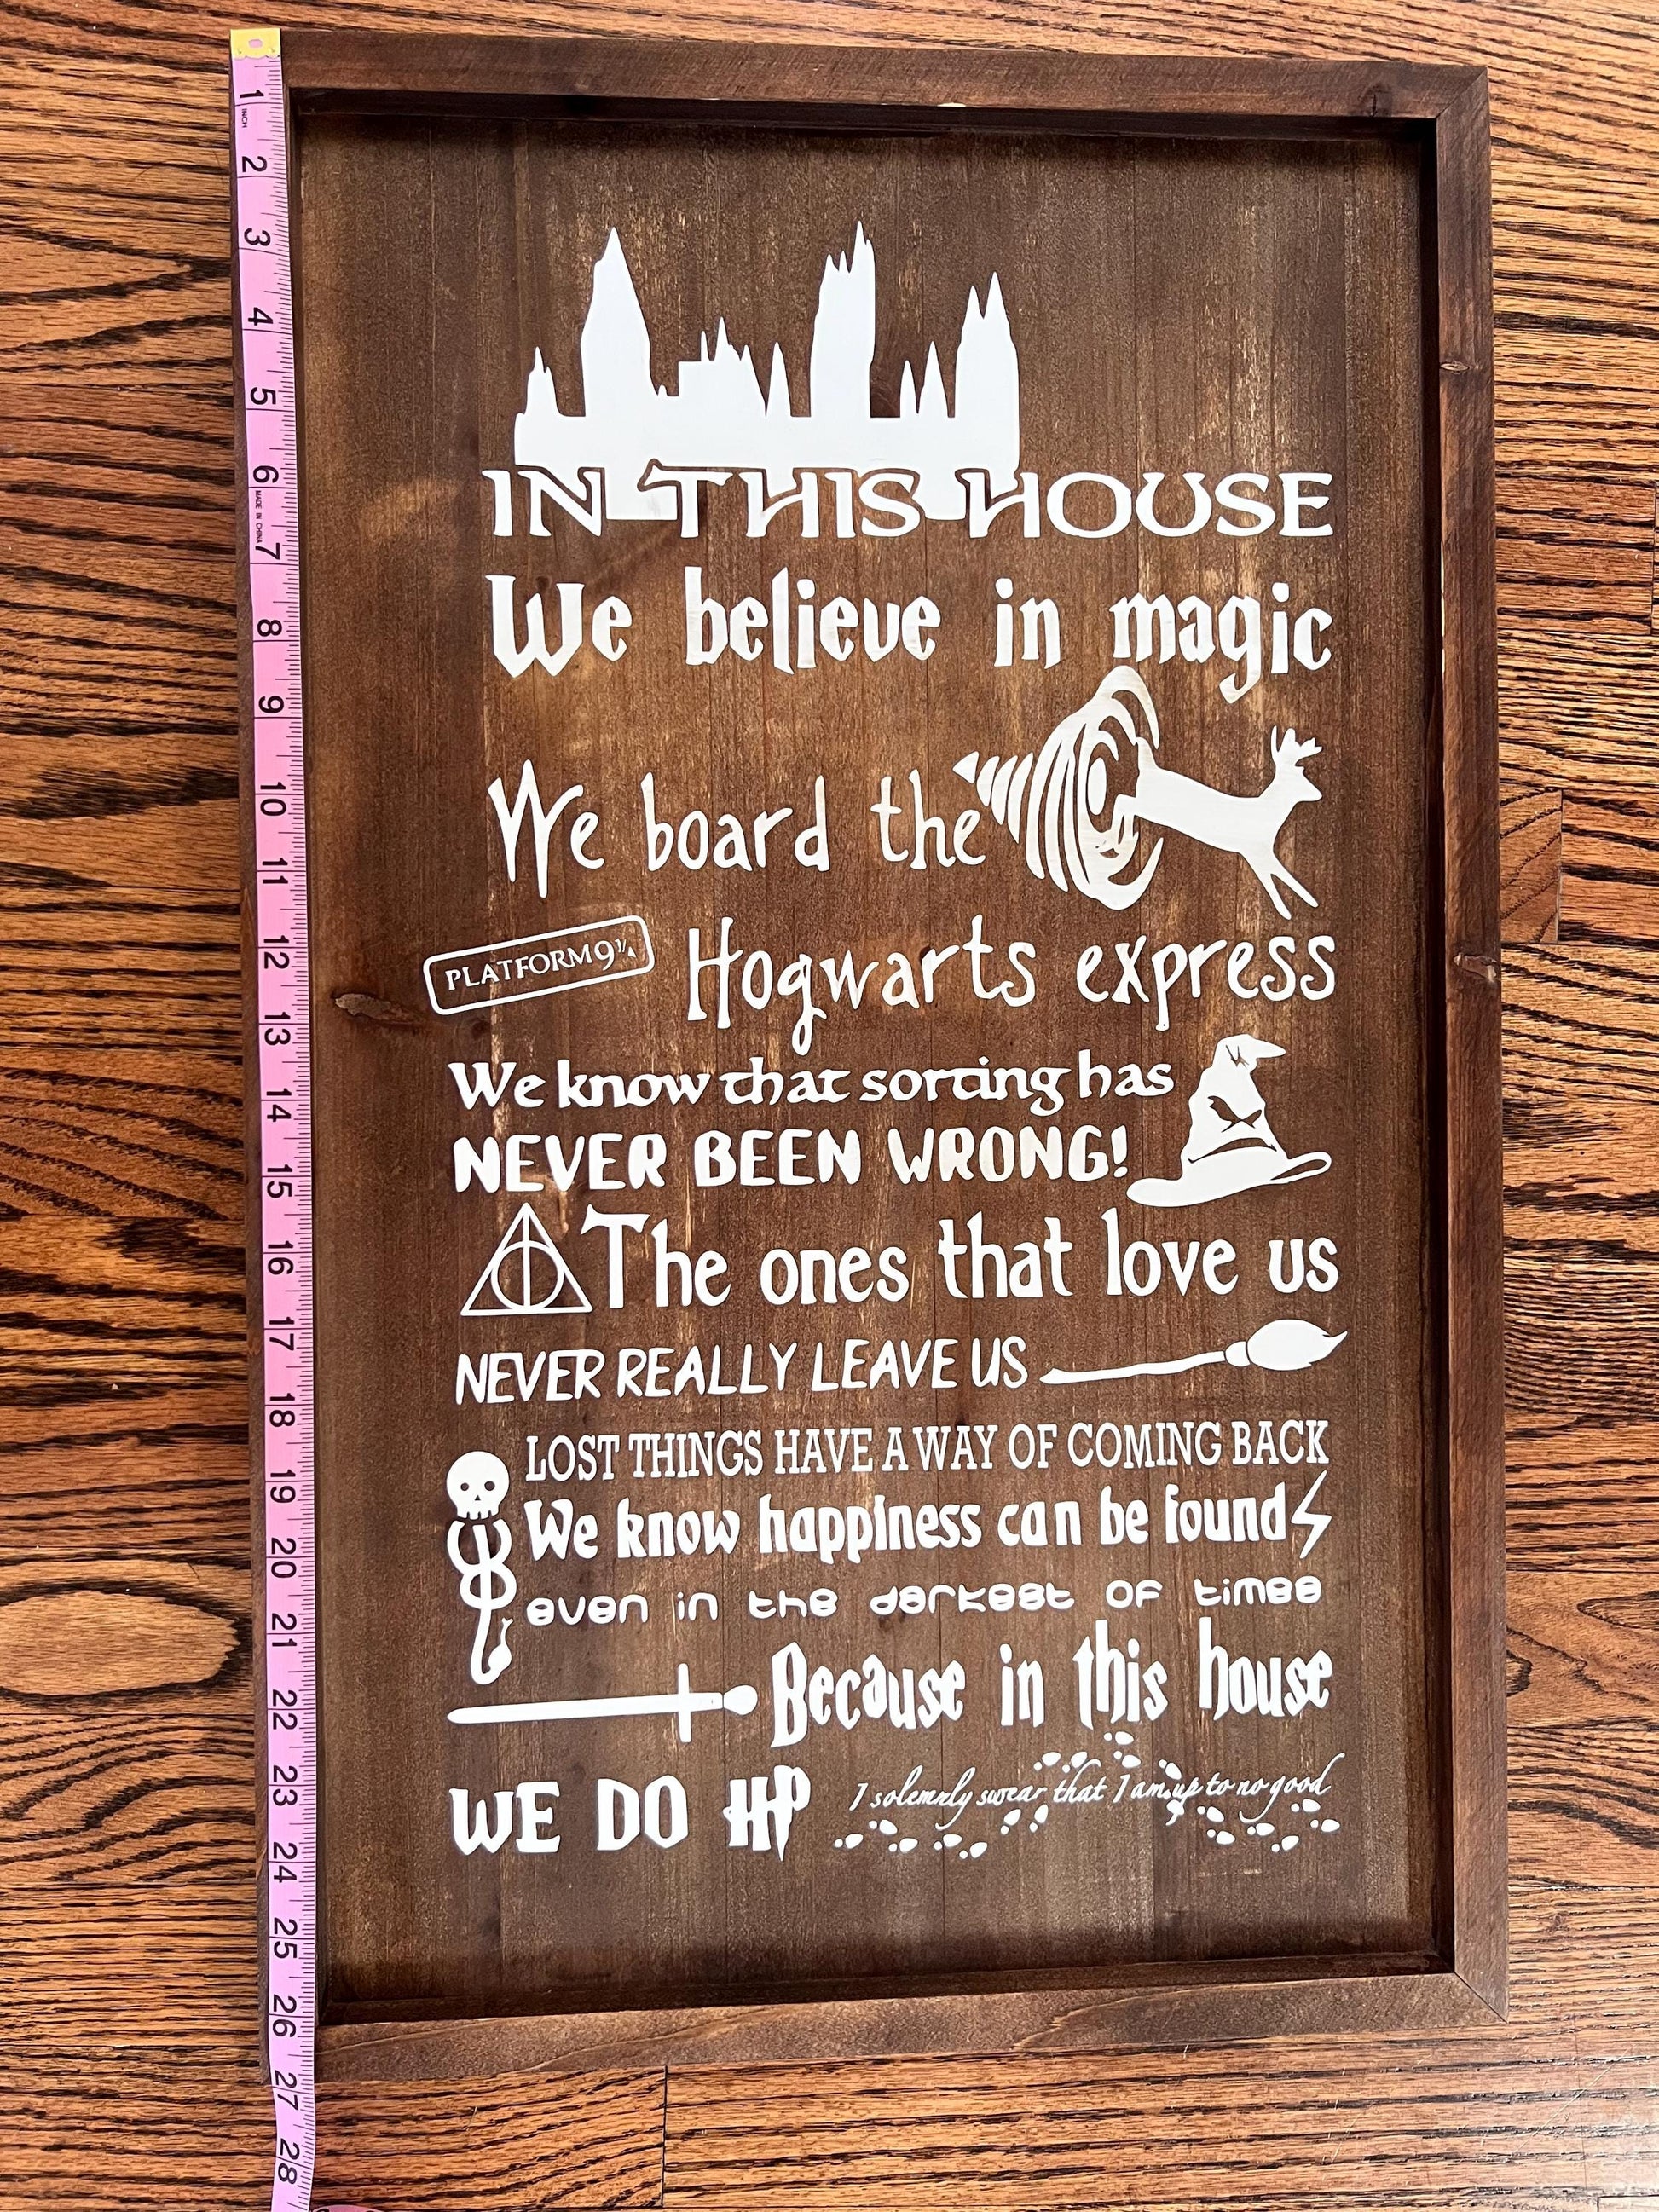 IN THIS HOUSE
We believe in magic
We board the
PLATFORM 9¾
Hogwarts express
We know that sorting has
NEVER BEEN WRONG!
The ones that love us
NEVER REALLY LEAVE US
LOST THINGS HAVE A WAY OF COMING BACK
We know happiness can be found
even in the darkest of times
Because in this house
WE DO HP
I solemnly swear that I am up to no good
1
INCH
2
3
4
5
6
MADE IN CHINA
7
8
9
10
11
12
13
14
15
16
17
18
19
20
21
22
23
24
25
26
27
28